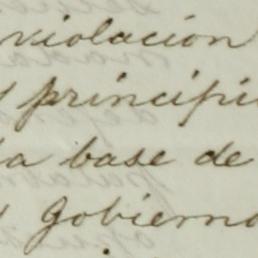 violacion
principi
la base de
Gobierno